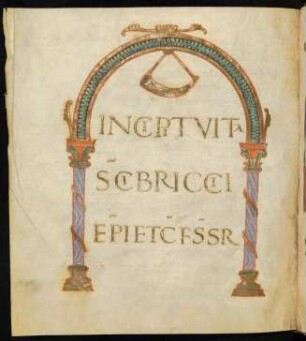 INCIPT VITA
SCI BRICCII
EPI ET CFSSR